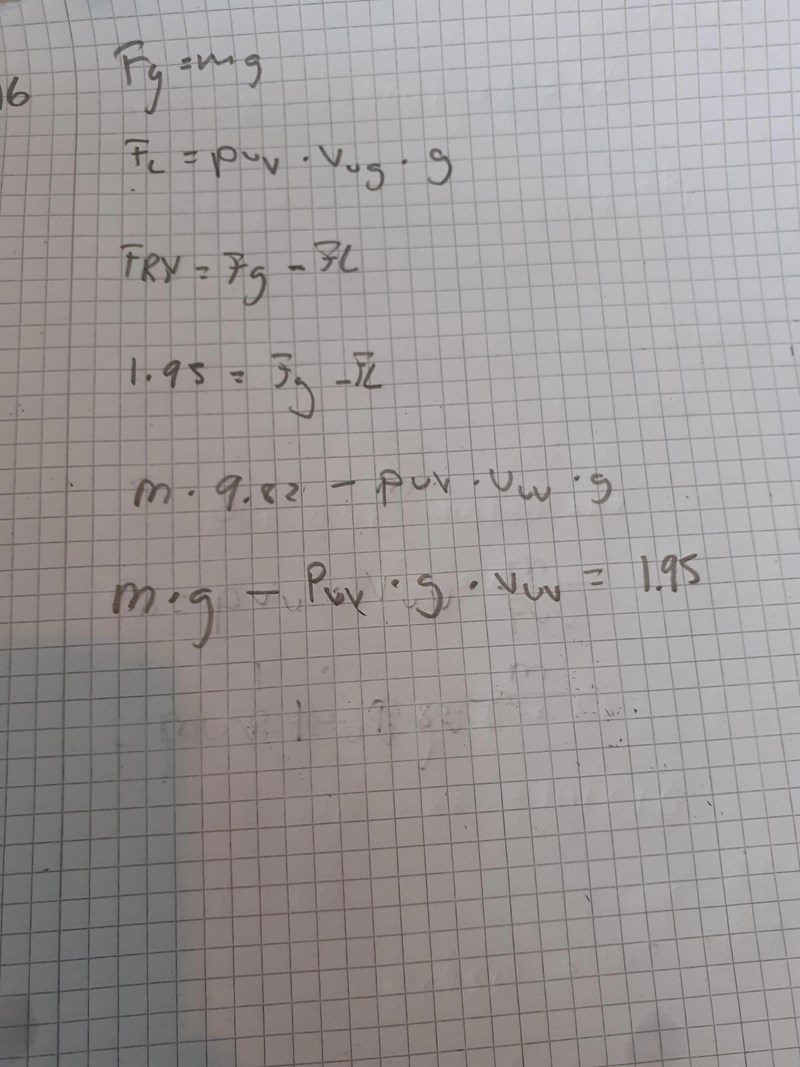 16
Fg = mg
FL = ρuv · Vug · g
FRX = Fg - FL
1.95 = Fg - FL
m · 9.82 - ρuv · Vuv · g
m · g - Puv · g · Vuv = 1.95